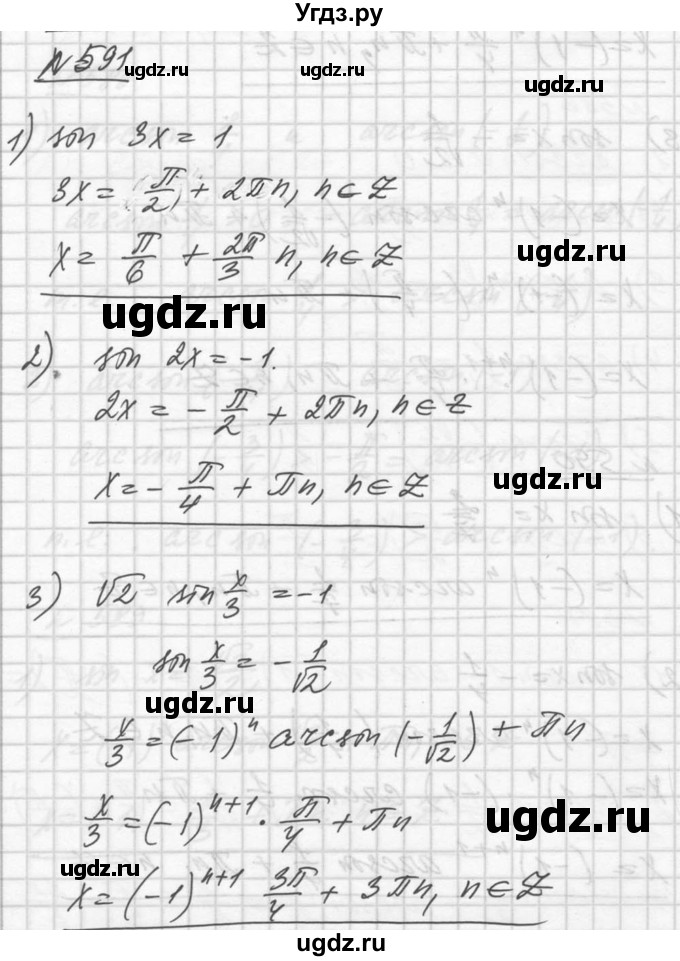 Угдз.ру
N 591
ugdz.ru ugdz.ru
1) sin 3x = 1
3x = π/2 + 2πn, n ∈ Z
ugdz.ru ugdz.ru
x = π/6 + 2π/3 n, n ∈ Z
ugdz.ru
ugdz.ru
2). sin 2x = -1.
2x = - π/2 + 2πn, n ∈ Z
ugdz.ru
x = - π/4 + πn, n ∈ Z
ugdz.ru
3) √2 sin x/3 = -1
ugdz.ru
sin x/3 = - 1/√2
ugdz.ru
x/3 = (-1)^n arcsin (- 1/√2) + πn
x/3 = (-1)^(n+1) · π/4 + πn
ugdz.ru
ugdz.ru
x = (-1)^(n+1) 3π/4 + 3πn, n ∈ Z
ugdz.ru